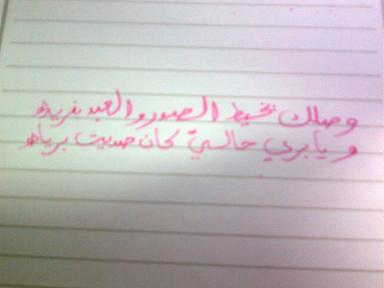 وصلك نخيط الصدور والعبد بغريده
ويا بري حالي كان صديت برياه